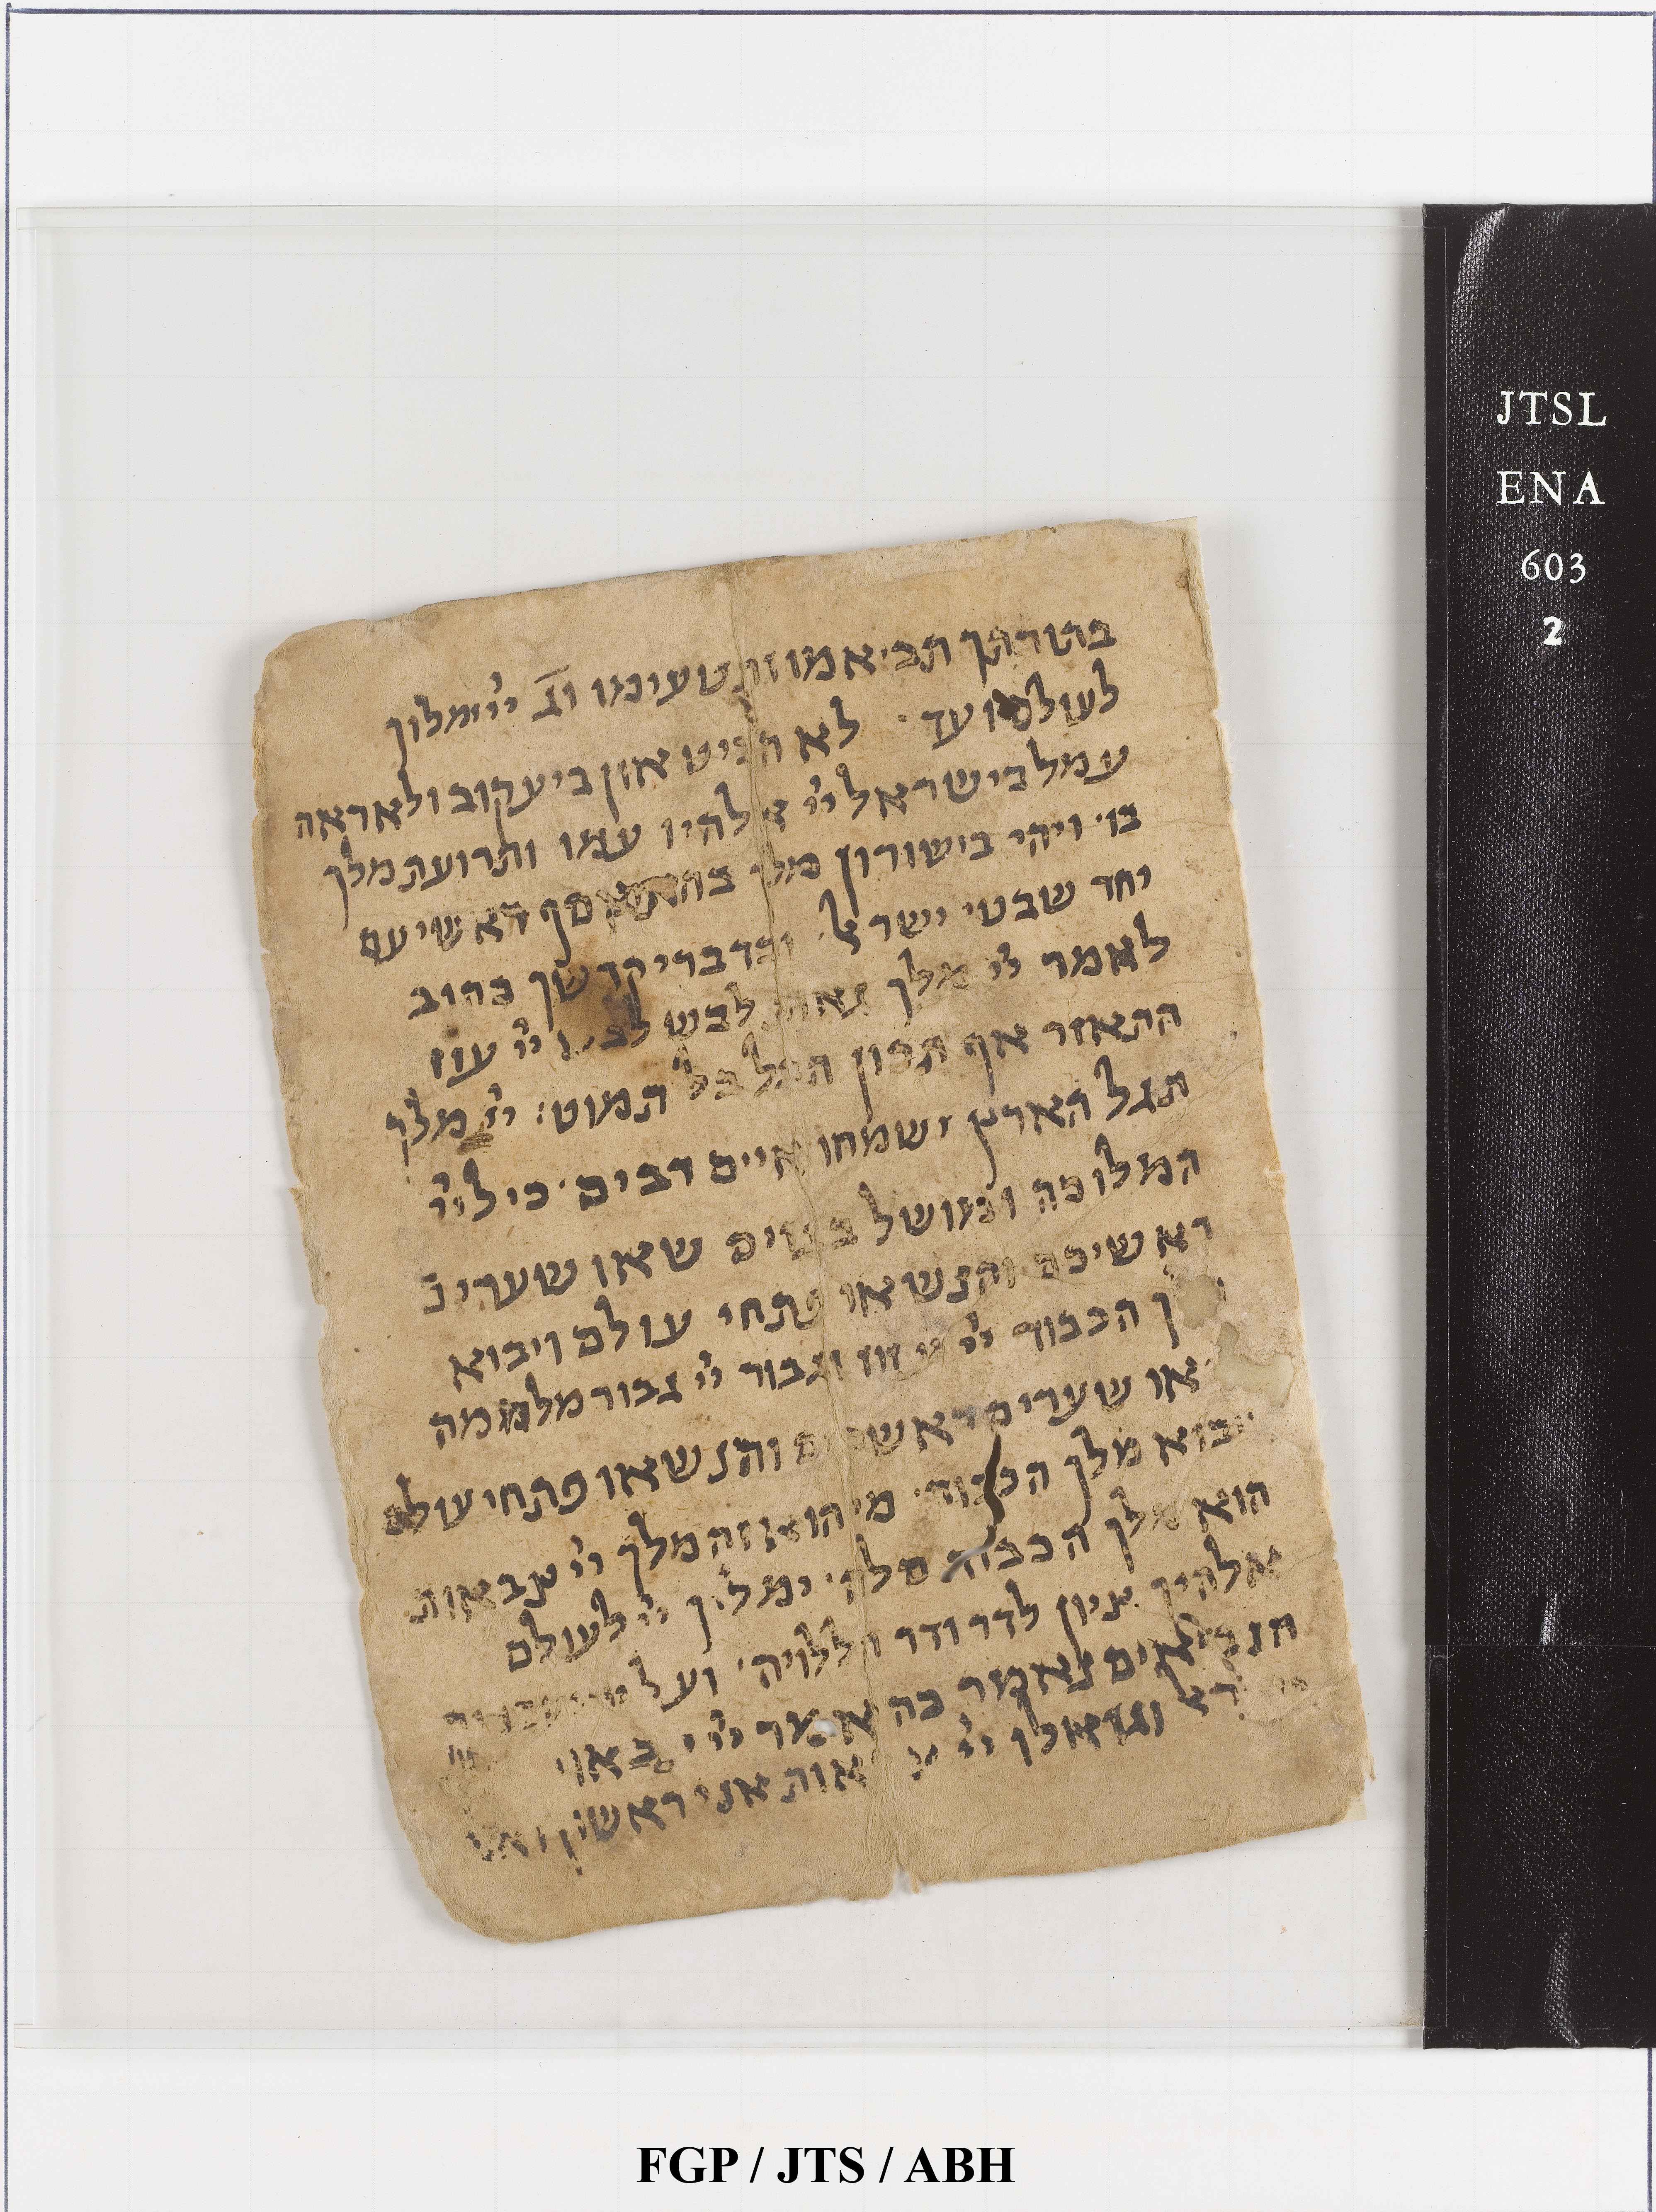 בתורתך תביאמו ותטעימו וג ייי ימלוך
לעולם ועד · לא הביט און ביעקוב ולא ראה
עמל בישראל ייי אלהיו עמו ותרועת מלך
בו · ויהי בישורון מלך בהתאסף ראשי עם
יחד שבטי ישרא ובדברי קדשך כתוב
לאמר ייי מלך גאות לבש לבש ייי עוז
התאזר אף תכון תבל בל תמוט : ייי מלך
תגל הארץ ישמחו איים רבים · כי לייי
המלוכה ומושל בגוים שאו שערים
ראשיכם והנשאו פתחי עולם ויבוא
ך הכבוד ייי עזוז וגבור ייי גבור מלחמה
או שערים ראשיכם והנשאו פתחי עולם
יבוא מלך הכבוד · מי הוא זה מלך ייי צבאות
הוא מלך הכבוד סלה · ימלוך ייי לעולם
אלהיך ציון לדר ודר הללויה · ועל
הנביאים נאמר כה אמר ייי
וגואלו ייי צבאות אני ראשון ואני
JTSL
ENA
603
2
FGP / JTS / ABH